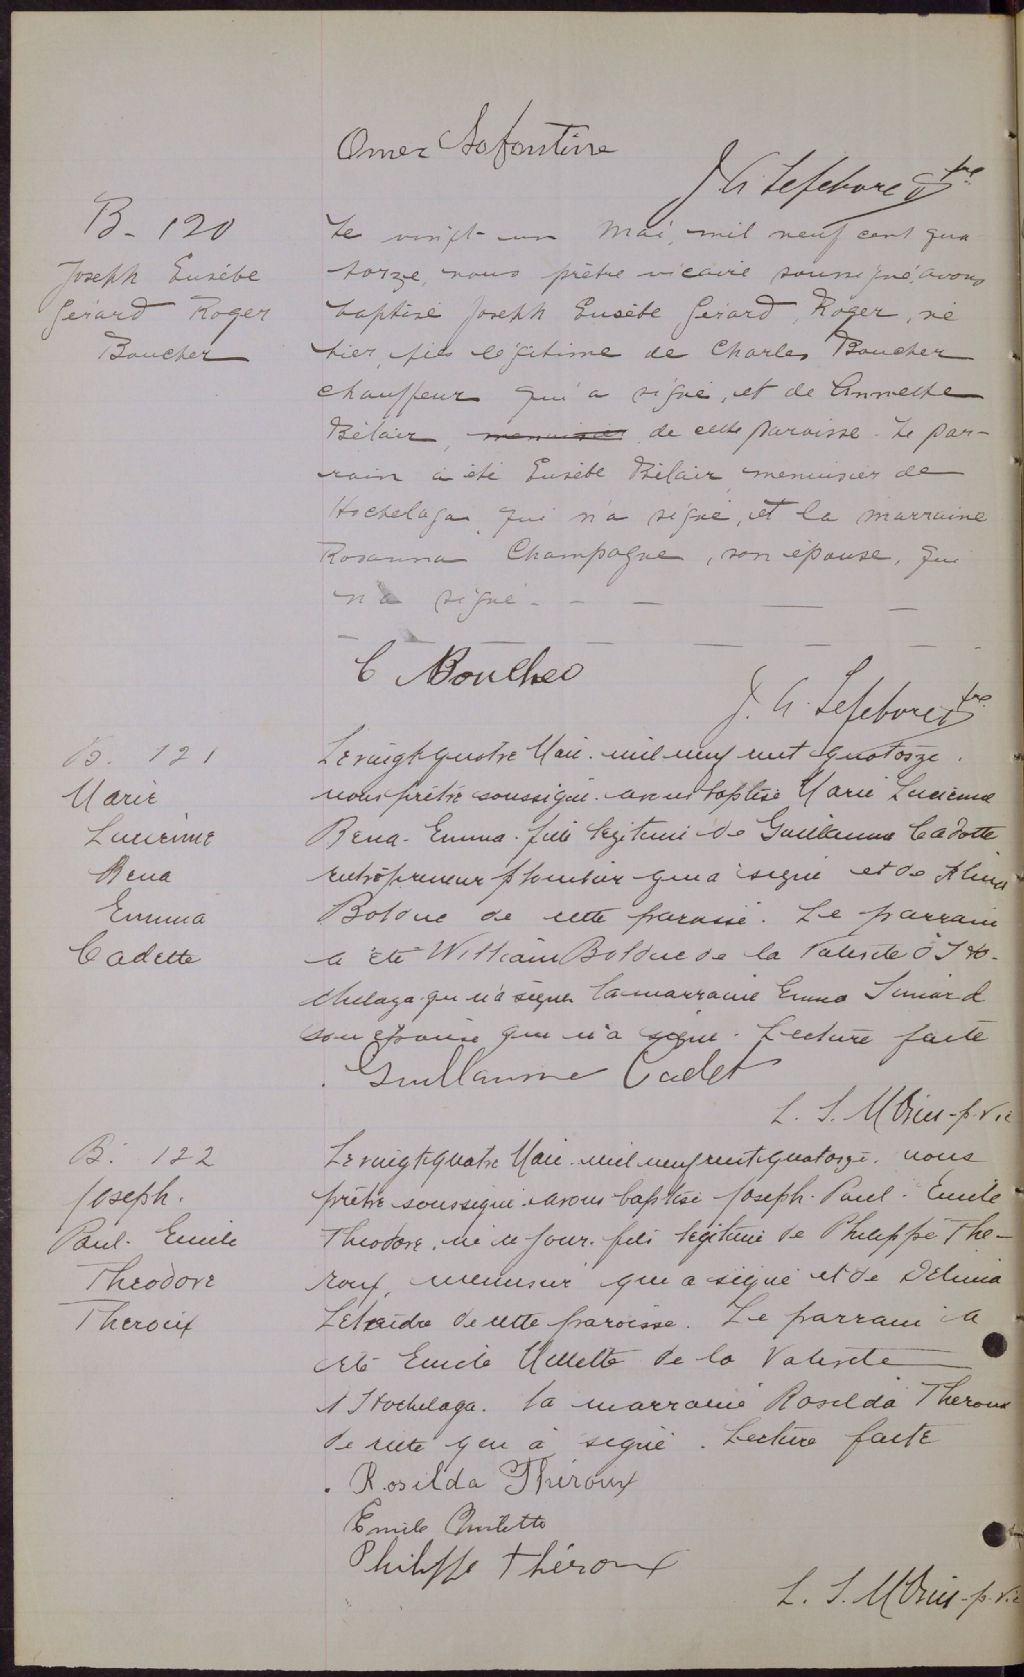 Omer Lafontaine
J. A. Lefebvre ptre
B- 120
Joseph Eusèbe
Gérard Roger
Boucher
Le vingt-un Mai, mil neuf cent qua
torze, nous prêtre vicaire soussigné, avons
baptisé Joseph Eusèbe Gérard, Roger, né
hier, fils légitime de Charles Boucher
chauffeur qui a signé, et de Annette
Bélair, menuisier de cette paroisse. Le par-
rain a été Eusèbe Bélair, menuisier de
Hochelaga, qui n'a signé, et la marraine
Rosanna Champagne, son épouse, qui
n'a signé - - — — —
C Boucher
J. A. Lefebvre ptre
B. 121
Marie
Lucienne
Rena
Emma
Cadette
Le vingt quatre Mai mil neuf cent quatorze.
nous prêtre soussigné avons baptisé Marie Lucienne
Rena Emma fille légitime de Guillaume Cadotte
entrepreneur plombier qui a signé et de Alina
Bolduc de cette paroisse. Le parrain
a été William Bolduc de la Nativité d'Ho-
chelaga qui n'a signé la marraine Emma Simard
son épouse qui n'a signé. Lecture faite
Guillaume Cadet
L. S. p. vic
B. 122
Joseph.
Paul. Emile
Theodore
Theroux
Le vingt-quatre Mai mil neuf cent quatorze. nous
prêtre soussigné avons baptisé Joseph Paul Emile
Theodore. né ce jour. fils légitime de Philippe The-
roux, menuisier qui a signé et de Delima
de cette paroisse. Le parrain a
été Emile Ouellette de la Nativité
d'Hochelaga. la marraine Rosilda Theroux
de cette qui a signé. Lecture faite
Rosilda Théroux
Emile Ouellette
Philippe Théroux
L. S. p. vic